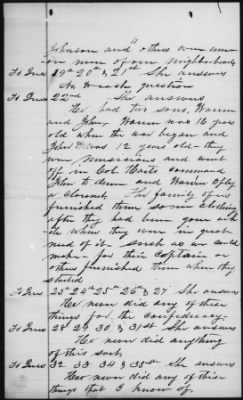 Johnson and others were un-
ion men of our neighborhood
To Ques 19th 20th & 21st She answers
No to each question
To Ques 22nd She answers
He had two sons, Warren
and John, Warren was 16 years
old when the war began and
John was 12 years old - they
were musicians and went
off in Col. Hart's command
John to drum and Warren to play
a clarionet. The family of us
furnished them some clothing
after they had been gone with
when they were in great
need of it. such as we could
make - for their Captain or
others furnished them when they
started
To Ques 25th 26th 25th 26th & 27 She answers
He never did any of these
things for the confederacy.
To Ques 28 29 30 & 31st She answers
He never did anything
of this sort.
To Ques 32 33 34 & 35th She answers
He never did any of these
things that I know of.